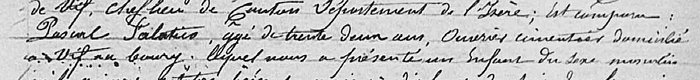 de Vif, chef lieu de Canton Département de l'Isère ; Est comparu :
Pascal Talatin, âgé de trente deux ans, Ouvrier cimentier domicilié
à Vif au bourg. Lequel nous a présenté un Enfant du sexe masculin